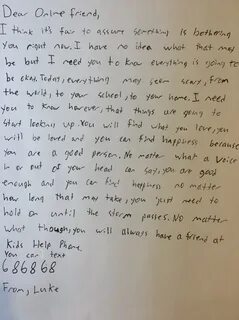 Dear Online friend,
I think it's fair to assume something is bothering
you right now. I have no idea what that may
be but I need you to know everything is going to
be okay. Today, everything may seem scary, from
the world, to your school, to your home. I need
you to know however, that things are going to
start looking up. You will find what you love, you
will be loved and you can find happiness because
you are a good person. No matter what a voice
in or out of your head can say, you are good
enough and you can find happiness no matter
how long that may take, you just need to
hold on until the storm passes. No matter
what though, you will always have a friend at
Kids Help Phone.
You can text
686868
From, Luke